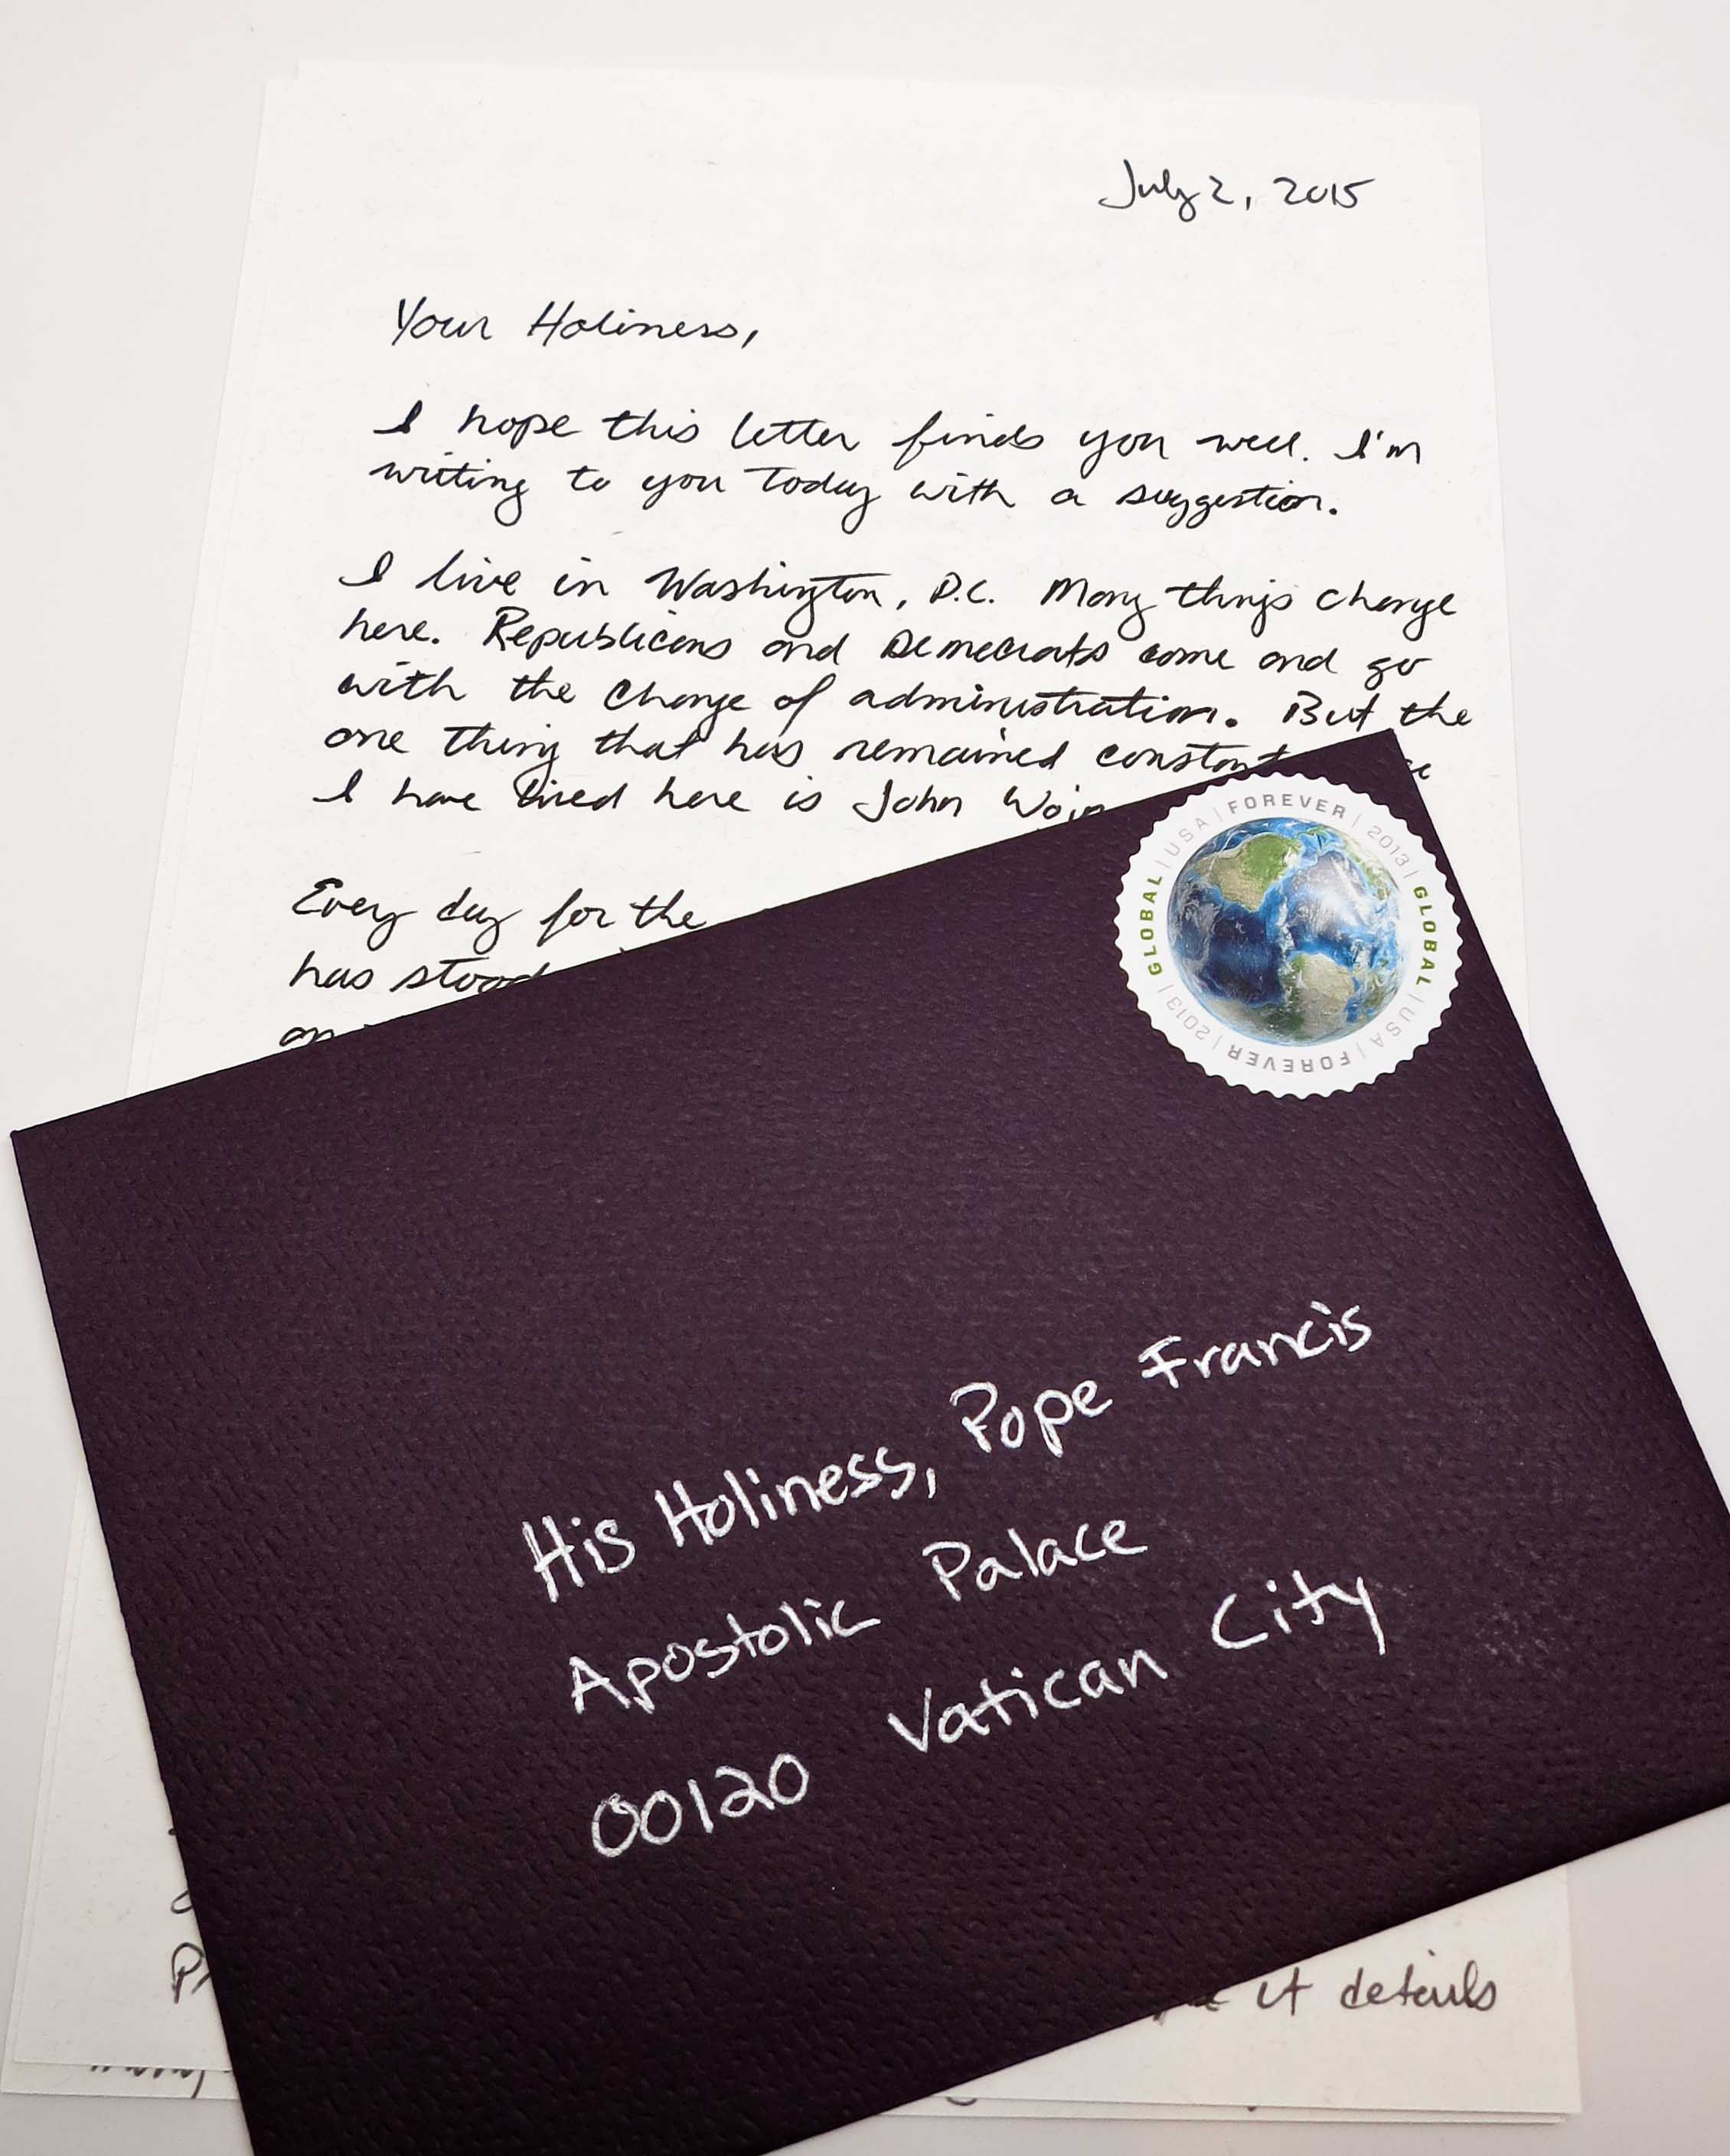 July 2, 2015
Your Holiness,
I hope this letter finds you well. I'm
writing to you today with a suggestion.
I live in Washington, D.C. Many things change
here. Republicans and Democrats come and go
with the change of administration. But the
one thing that has remained constant
I have lived here is John
Every day for the
has stood
GLOBAL | USA | FOREVER | 2013 | GLOBAL | USA | FOREVER | 2013 |
His Holiness, Pope Francis
Apostolic Palace
00120 Vatican City
it details